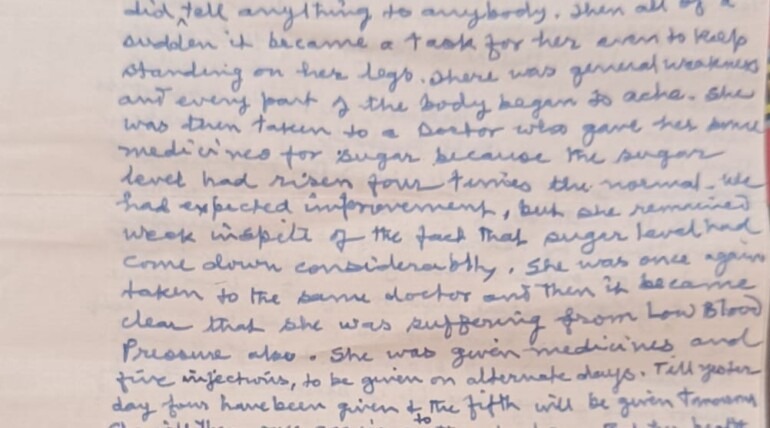 did tell anything to anybody. Then all of a
sudden it became a task for her even to keep
standing on her legs. There was general weakness
and every part of the body began to ache. She
was then taken to a Doctor who gave her some
medicines for sugar because the sugar
level had risen four times the normal. We
had expected improvement, but she remained
weak inspite of the fact that sugar level had
come down considerably. She was once again
taken to the same doctor and then it became
clear that she was suffering from Low Blood
Pressure also. She was given medicines and
five injections, to be given on alternate days. Till yester
day four have been given & the fifth will be given
to